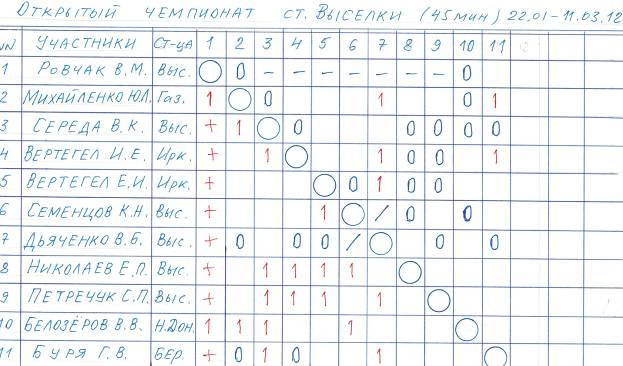 Открытый чемпионат ст. Выселки (45мин) 22.01-11.03.12
№№ Участники Ст-ца 1 2 3 4 5 6 7 8 9 10 11 12
1 Ровчак В.М. Выс. 0 - - - - - - - 0
2 Михайленко Ю.Л. Газ. 1 0 1 0 1
3 Середа В.К. Выс. + 1 0 0 0 0 0
4 Вертегел И.Е. Ирк. + 1 1 0 0 1
5 Вертегел Е.И. Ирк. + 0 1 0 0
6 Семенцов К.Н. Выс. + 1 / 0 0
7 Дьяченко В.Б. Выс. + 0 0 0 / 0 0
8 Николаев Е.П. Выс. + 1 1 1 1
9 Петречук С.П. Выс. + 1 1 1 1
10 Белозёров В.В. Н.Дон. 1 1 1 1
11 Буря Г.В. Бер. + 0 1 0 1